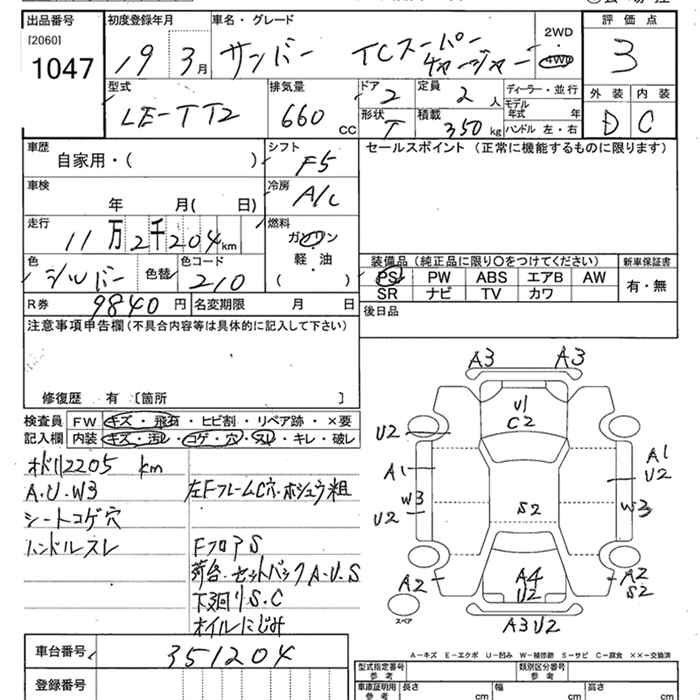 出品番号 初度登録年月 車名・グレード 2WD 評価点
[2060]
1047 19 3月 サンバー TCスーパーチャージャー 4WD 3
型式 排気量 ドア 定員 ディーラー・並行 外装 内装
LE-TT2 660 CC 2 2 人 モデル年式 年 D C
形状 積載 ハンドル 左・右
T 350 kg
車歴 シフト セールスポイント (正常に機能するものに限ります)
自家用・( ) F5
車検 冷房
年 月( 日) A/C
走行 燃料
11万2千204km ガソリン
軽・油
( )
色 色替 色コード 装備品 (純正品に限り○をつけてください) 新車保証書
シルバー 210 PS PW ABS エアB AW 有・無
SR ナビ TV カワ
R券 9840 円 名変期限 月 日 後日品
注意事項申告欄(不具合内容等は具体的に記入して下さい)
修復歴 有 〔箇所 〕
検査員 FW キズ・飛石・ヒビ割・リペア跡・×要
記入欄 内装 キズ・汚レ・コゲ・穴・スレ・キレ・破レ
オドリ2205 km
A・U・W3 左FフレームC穴・ホシュウ粗
シートコゲ穴
ハンドルスレ FフロアS
荷台・セットバックA・U・S
下廻りS・C
オイルにじみ
A3 A3
U1
C2
U2
A1 A1
U2
W3 W3
U2
S2
A2 A4 A2
U2 S2
スペア
A3U2
車台番号 351204
登録番号
A-キズ E-エクボ U-凹み W-補修跡 S-サビ C-腐食 ××-交換済
型式指定番号 類別区分番号
参考 参考
車庫証明用 長さ 幅 高さ
参考 cm cm cm